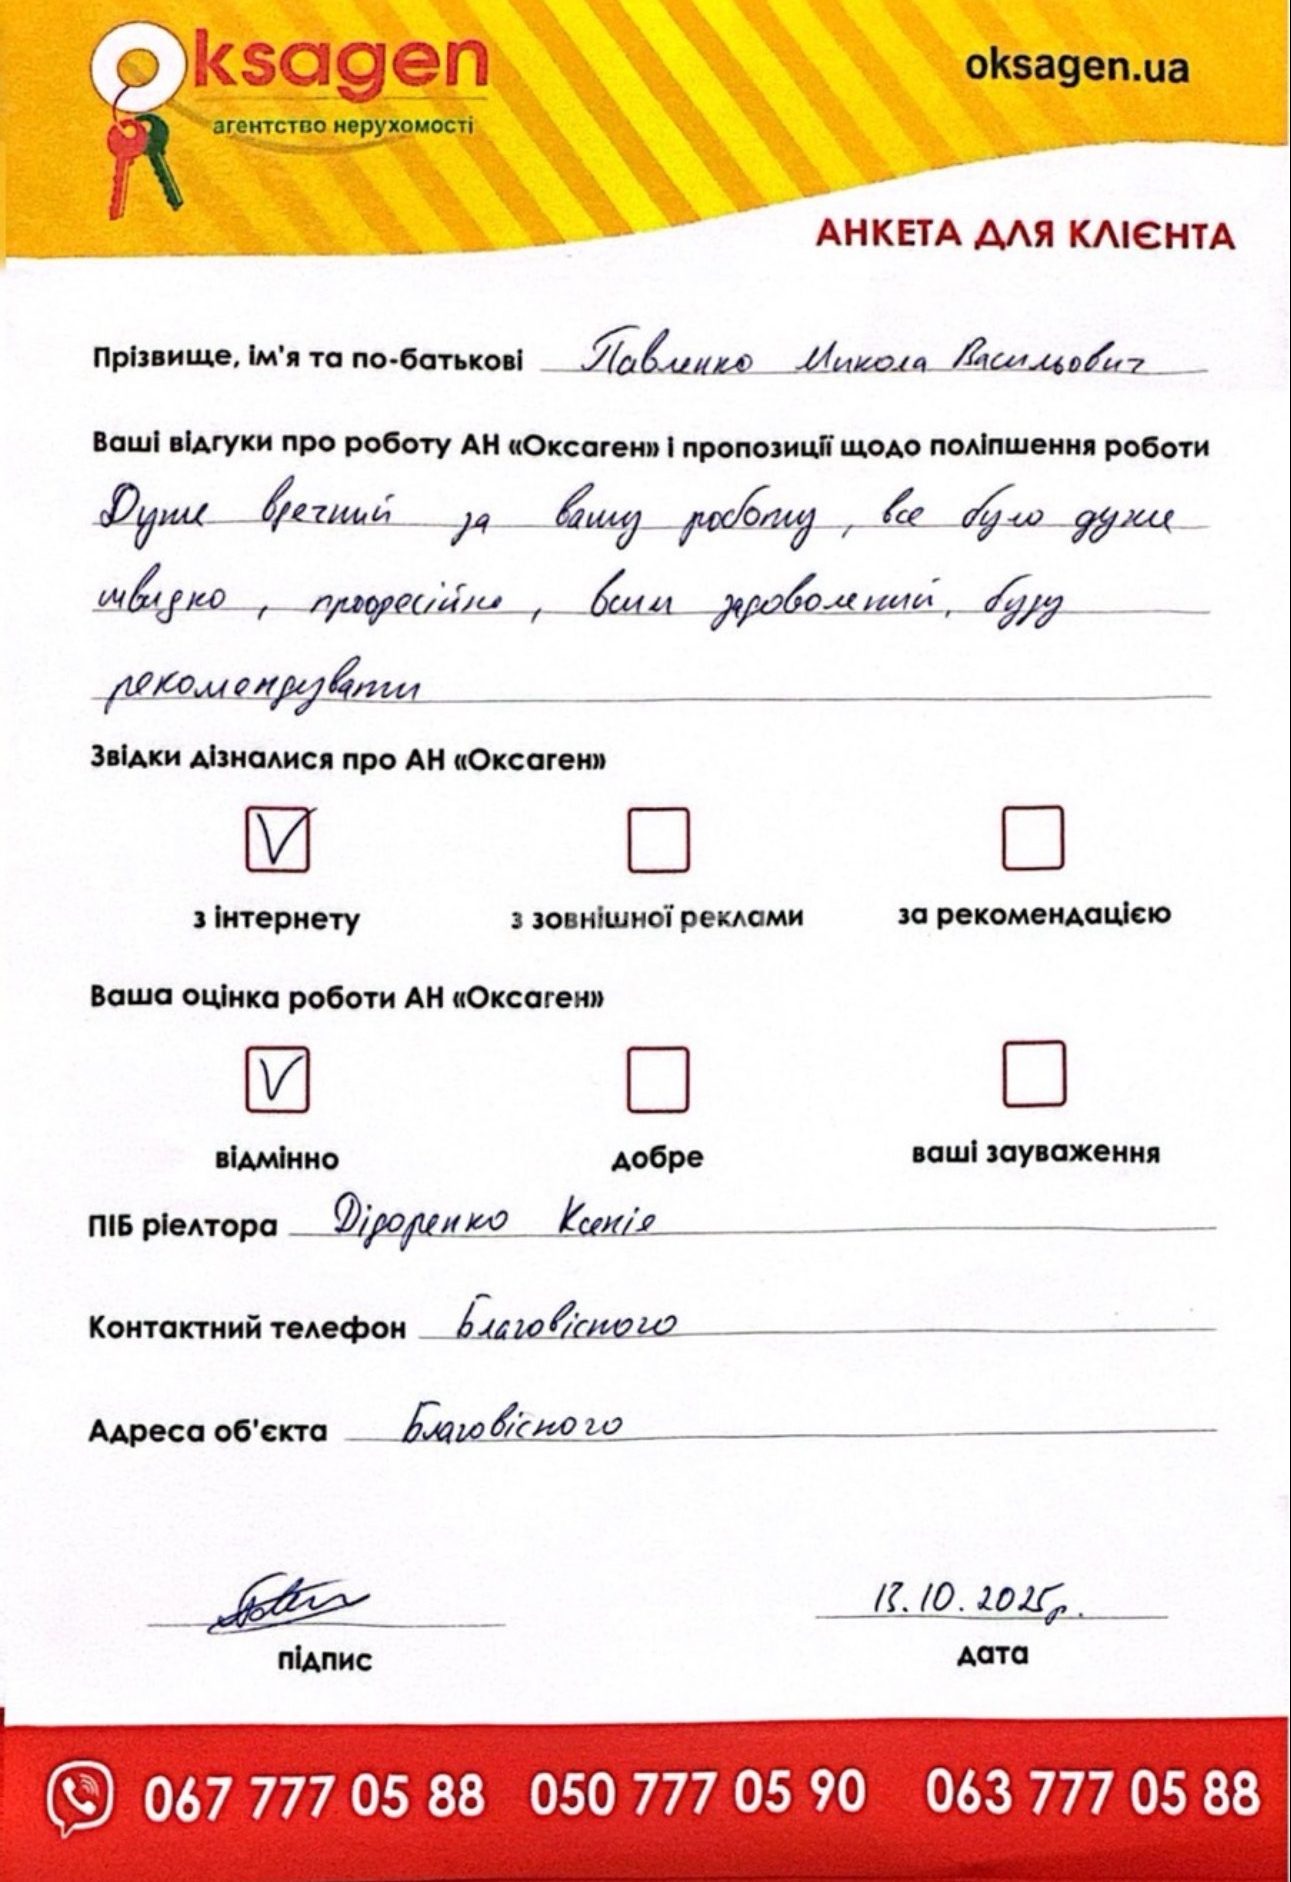 Oksagen
агентство нерухомості
oksagen.ua
АНКЕТА ДЛЯ КЛІЄНТА
Прізвище, ім'я та по-батькові Павленко Микола Васильович
Ваші відгуки про роботу АН «Оксаген» і пропозиції щодо поліпшення роботи
Дуже вдячний за вашу роботу, все було дуже
швидко, професійно, всим задоволений, буду
рекомендувати
Звідки дізналися про АН «Оксаген»
V
з інтернету з зовнішної реклами за рекомендацією
Ваша оцінка роботи АН «Оксаген»
V
відмінно добре ваші зауваження
ПІБ ріелтора Дідоренко Ксенія
Контактний телефон Благовісного
Адреса об'єкта Благовісного
13.10.2025р.
підпис дата
067 777 05 88 050 777 05 90 063 777 05 88